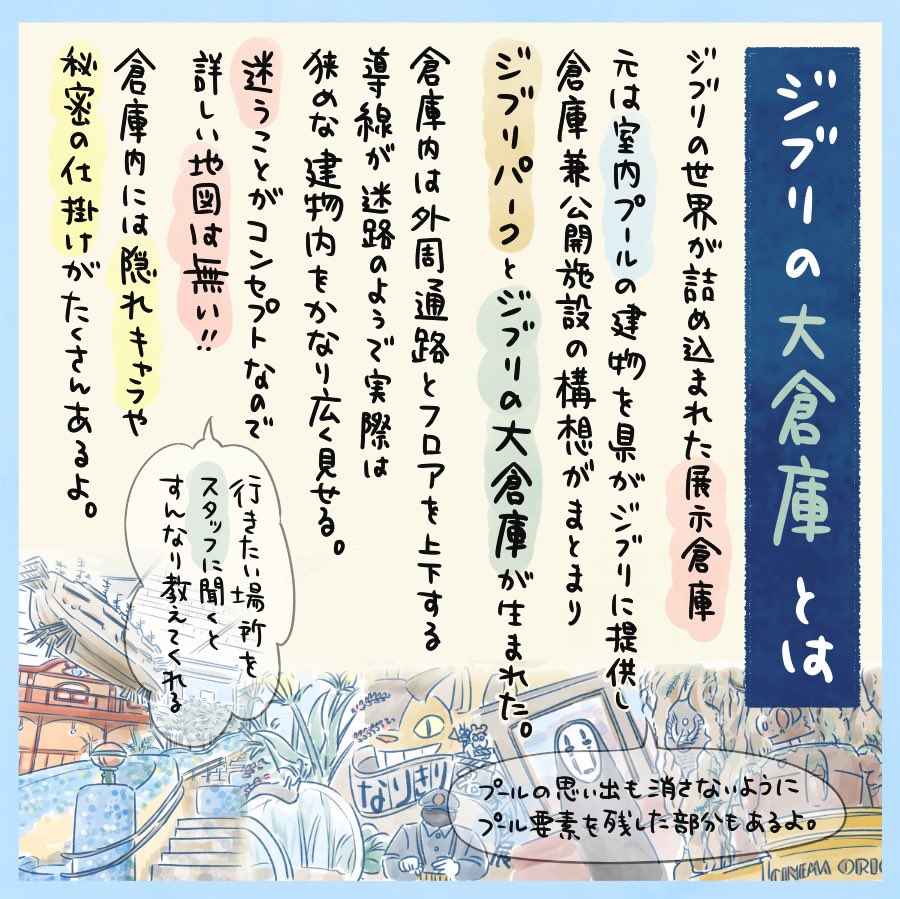 ジブリの大倉庫とは
ジブリの世界が詰め込まれた展示倉庫
元は室内プールの建物を県がジブリに提供し
倉庫兼公開施設の構想がまとまり
ジブリパークとジブリの大倉庫が生まれた。
倉庫内は外周通路とフロアを上下する
導線が迷路のようで実際は
狭めな建物内をかなり広く見せる。
迷うことがコンセプトなので
詳しい地図は無い!!
倉庫内には隠れキャラや
秘密の仕掛けがたくさんあるよ。
行きたい場所を
スタッフに聞くと
すんなり教えてくれる
プールの思い出も消さないように
プール要素を残した部分もあるよ。
なりきり
展
CINEMA ORIO